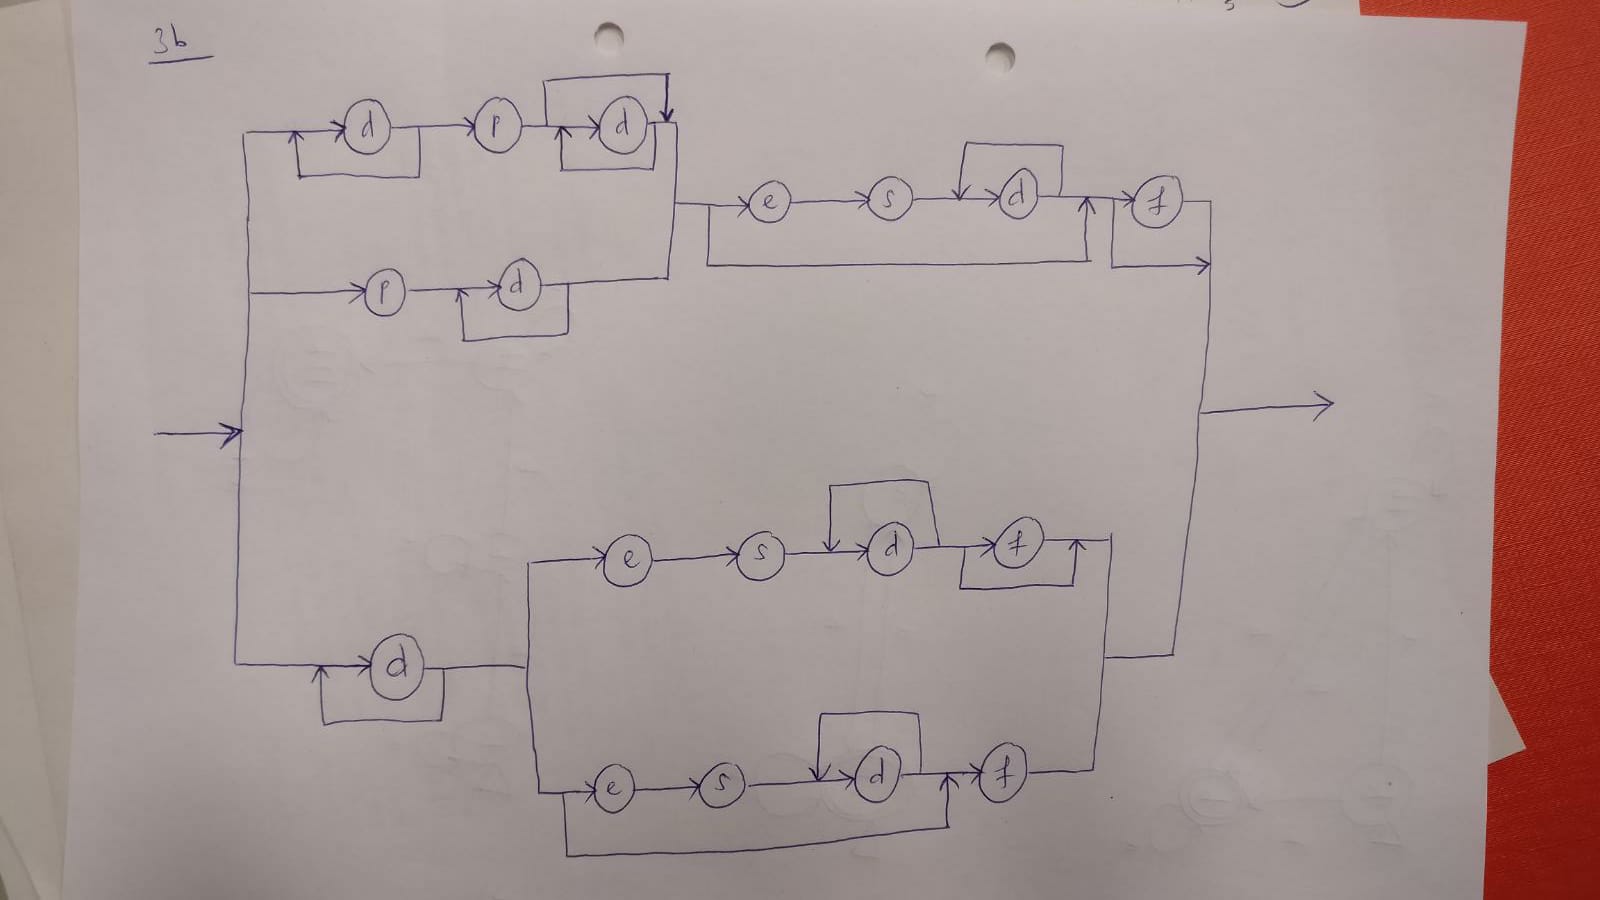 3b
d p d
e s d f
p d
e s d f
d
e s d f